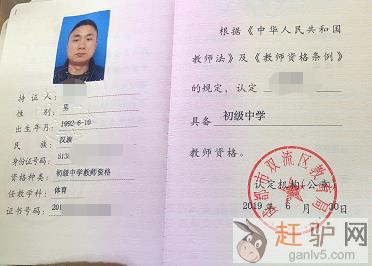 持证人
性别 男
出生年月 1992-6-19
民族 汉族
身份证号码 513
资格种类 初级中学教师资格
任教学科 体育
证书号码 201
根据《中华人民共和国
教师法》及《教师资格条例》
的规定，认定
具备 初级中学
教师资格。
认定机构（公章）
2019年 6月 30日
双流区教
赶驴网
ganlv5.com